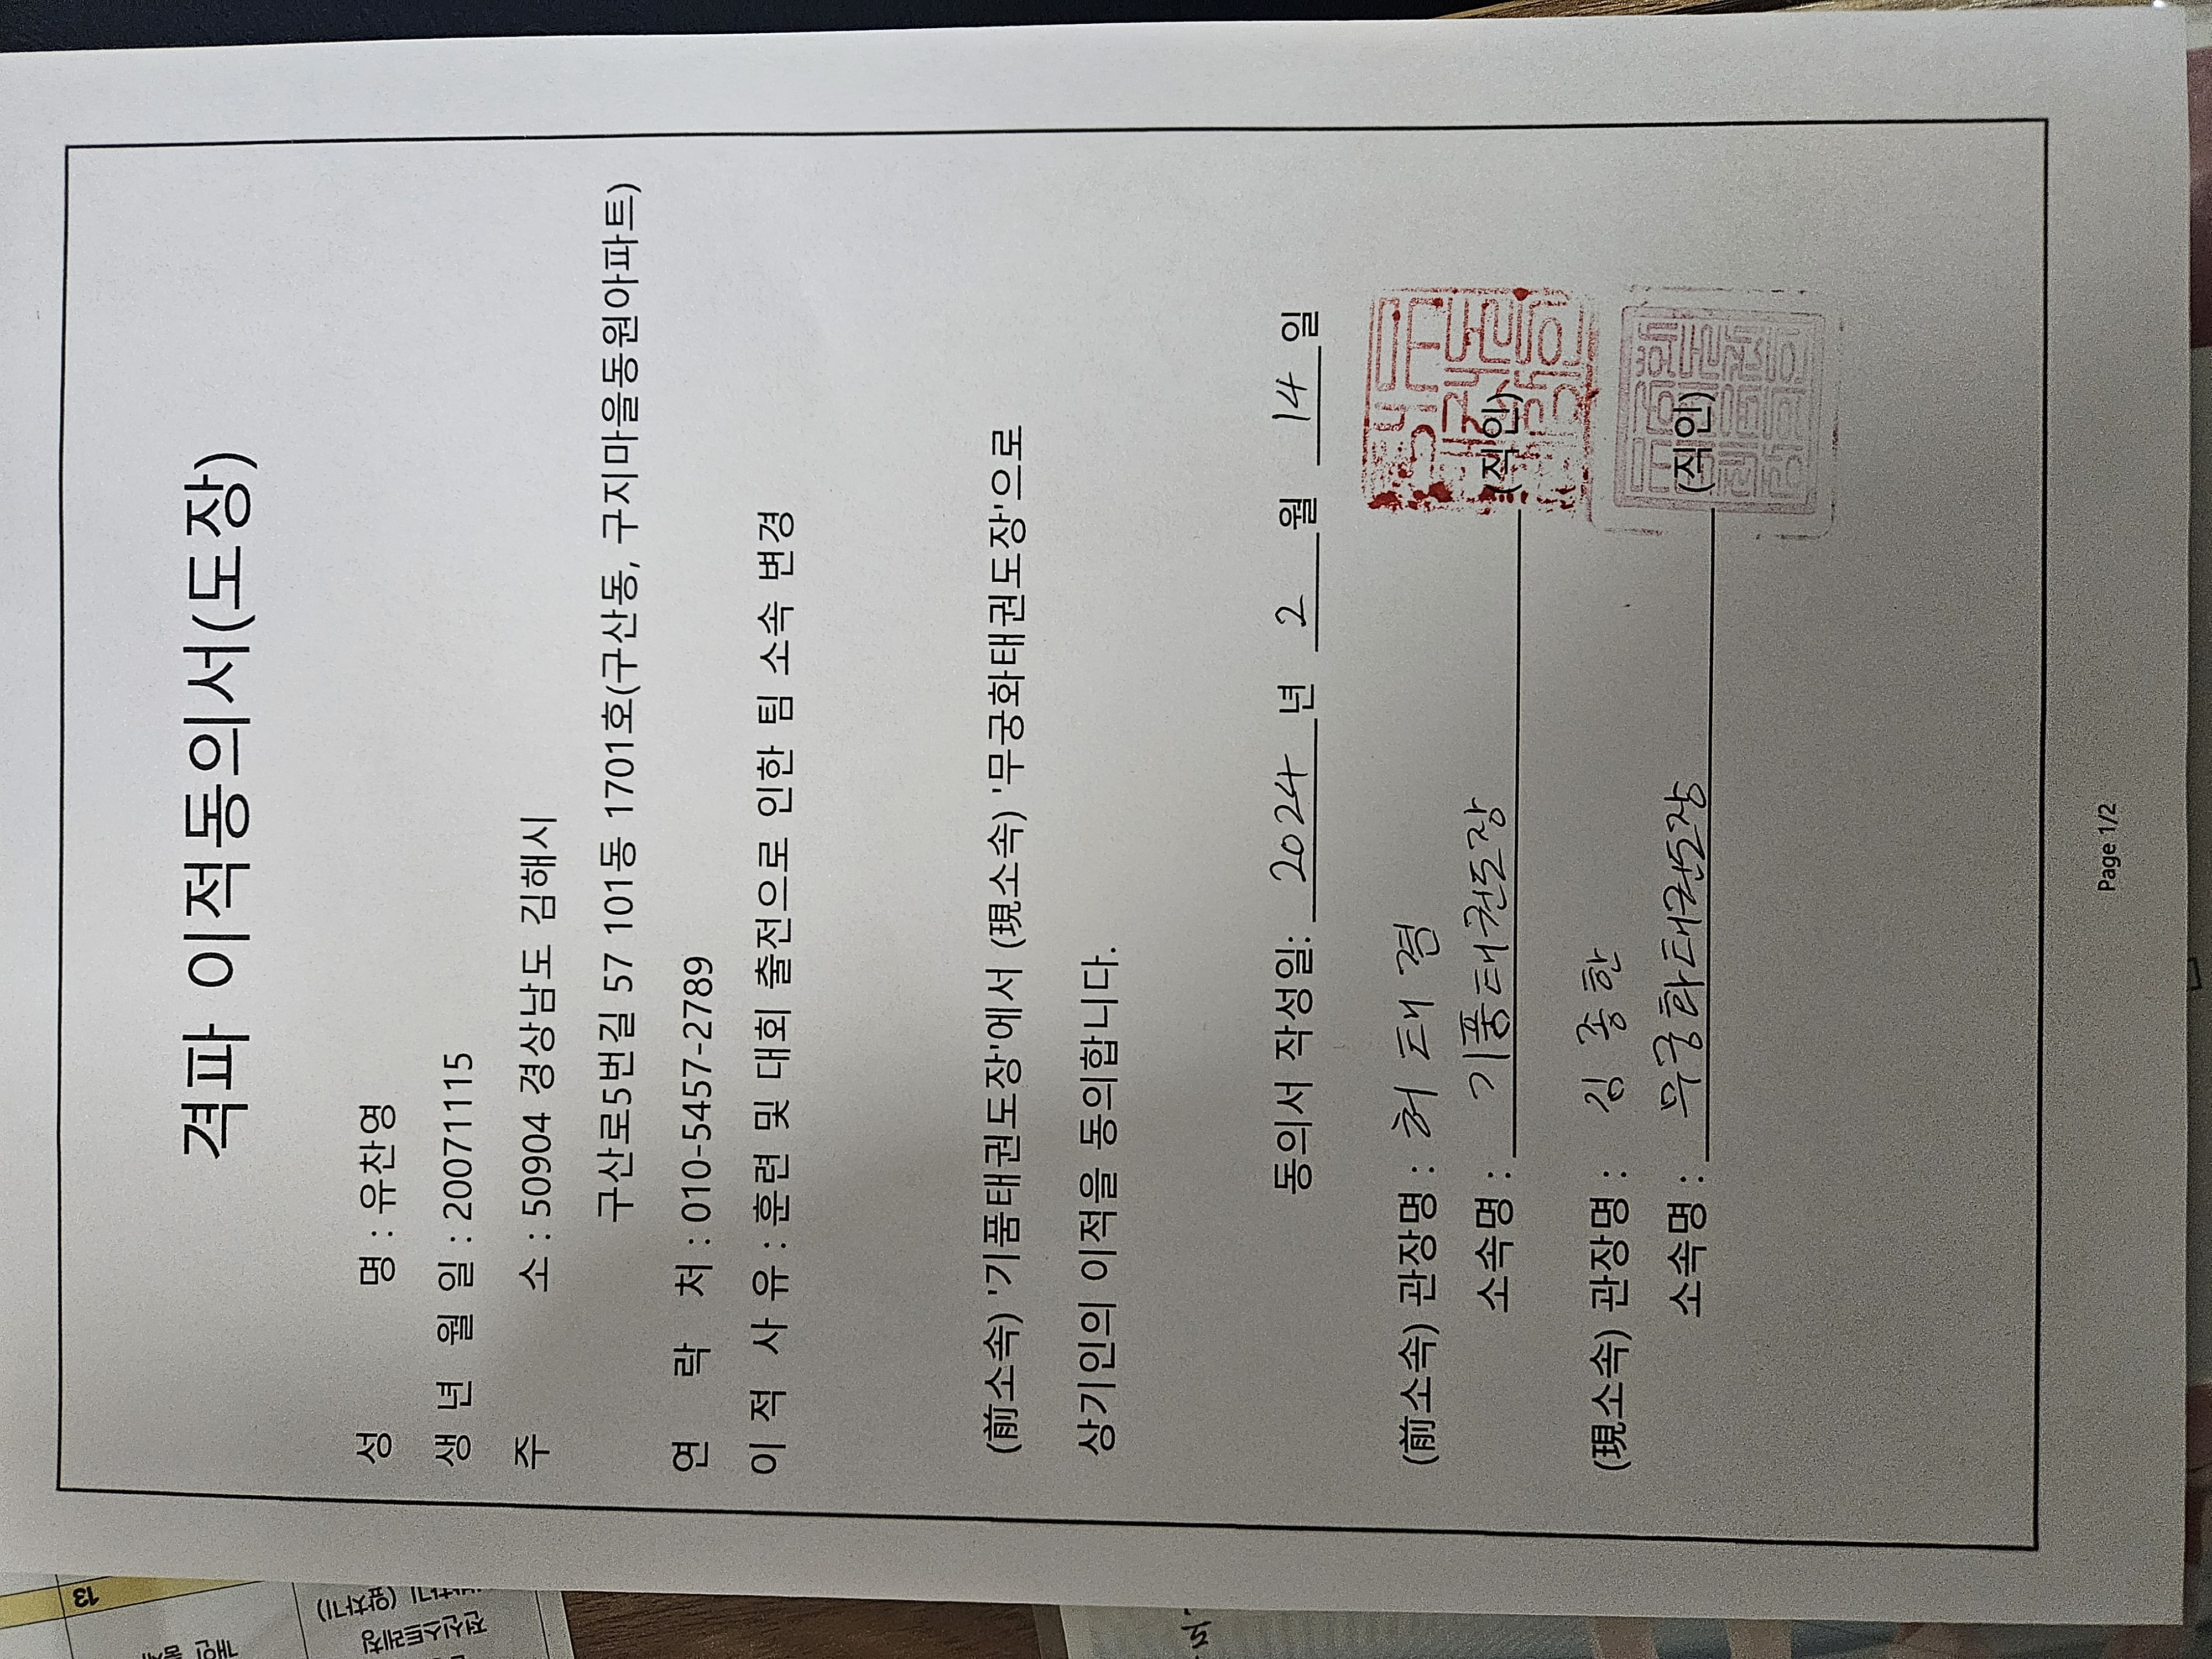 격파 이적동의서(도장)
성 명 : 유찬영
생 년 월 일 : 20071115
주 소 : 50904 경상남도 김해시
구산로5번길 57 101동 1701호(구산동, 구지마을동원아파트)
연 락 처 : 010-5457-2789
이 적 사 유 : 훈련 및 대회 출전으로 인한 팀 소속 변경
(前소속) '기품태권도장'에서 (現소속) '무궁화태권도장'으로
상기인의 이적을 동의합니다.
동의서 작성일: 2024 년 2 월 14 일
(前소속) 관장명 : 허 태 겸
소속명 : 기품태권도장 (직인)
(現소속) 관장명 : 김 종 한
소속명 : 무궁화태권도장 (직인)
Page 1/2
13